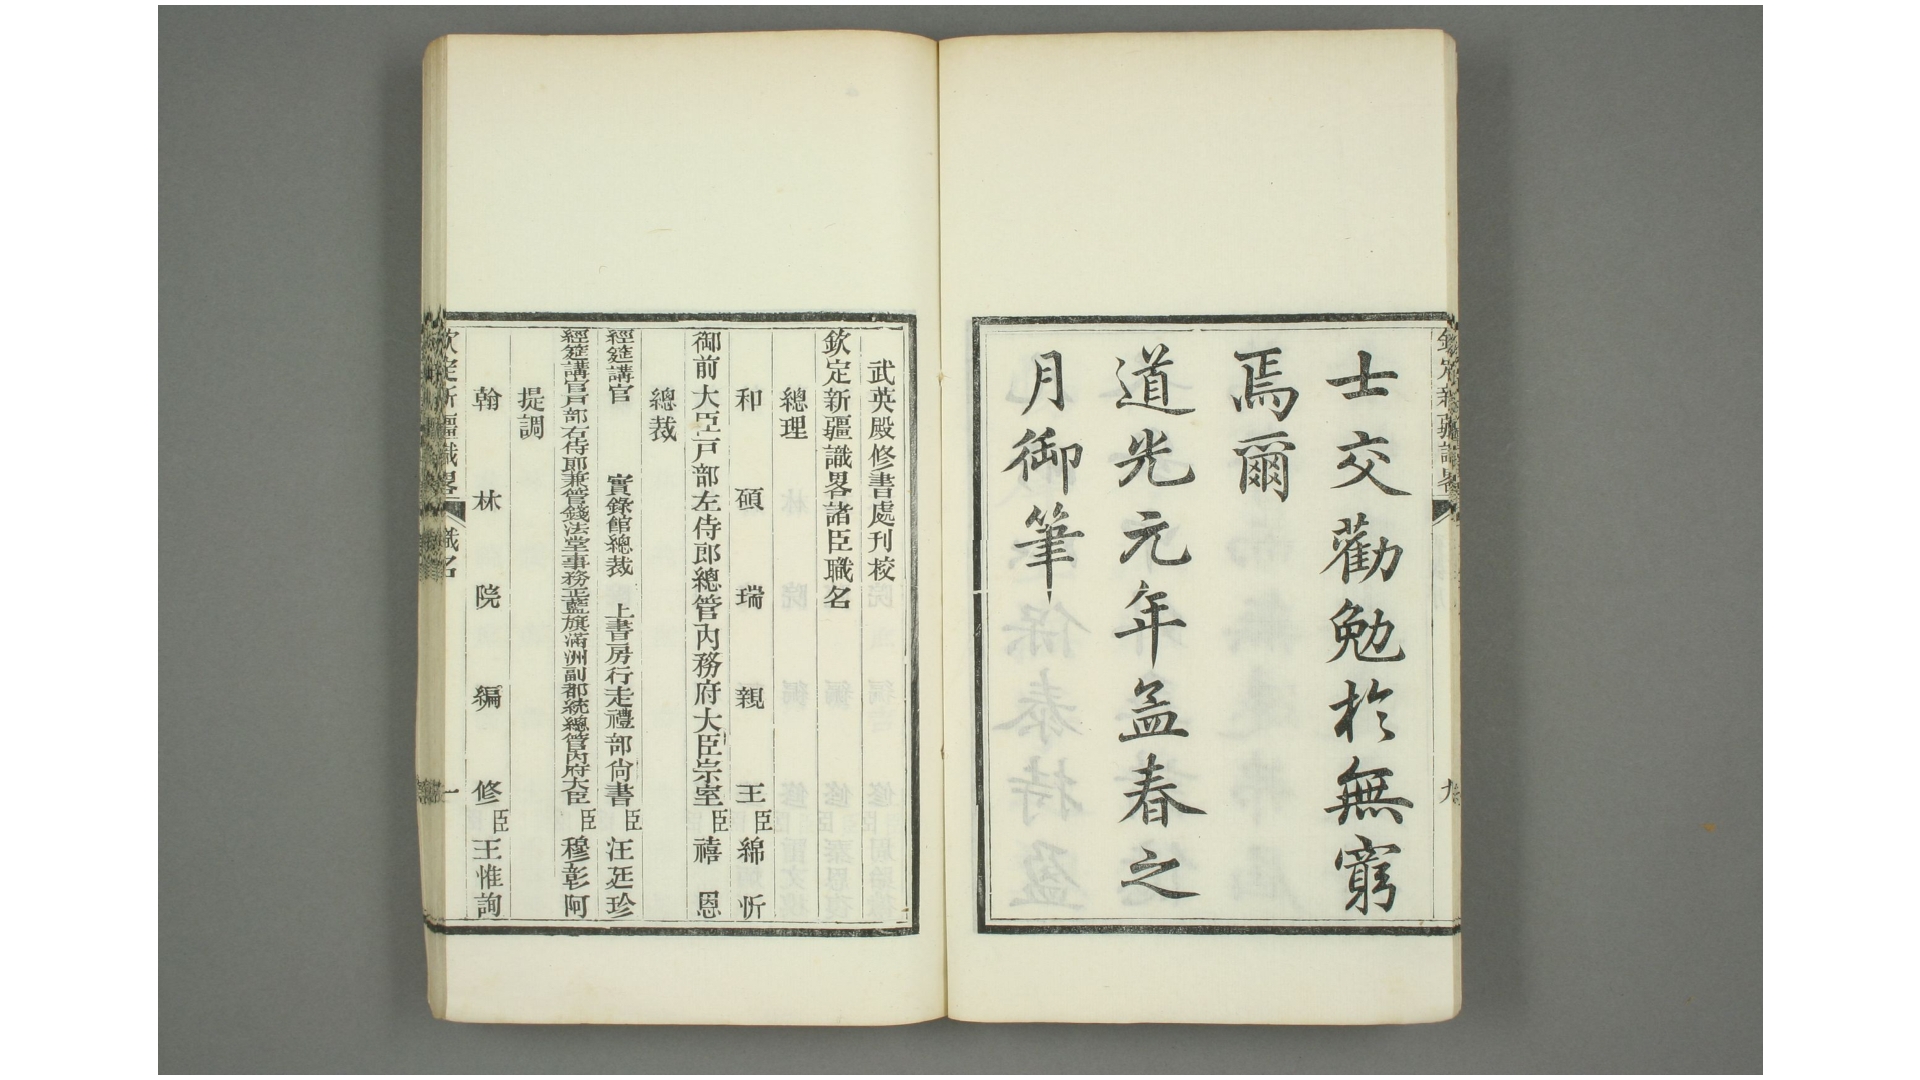 士交勸勉於無窮
焉爾
道光元年孟春之
月御筆
武英殿修書處刊校
欽定新疆識畧諸臣職名
總理
和碩瑞親王臣綿忻
御前大臣戶部左侍郎總管內務府大臣宗室臣禧恩
總裁
經筵講官 實錄館總裁 上書房行走禮部尙書臣汪廷珍
經筵講官戶部右侍郎兼管錢法堂事務正藍旗滿洲副都統總管內府大臣臣穆彰阿
提調
翰林院編修臣王惟詢
欽定新疆識畧 職名 一